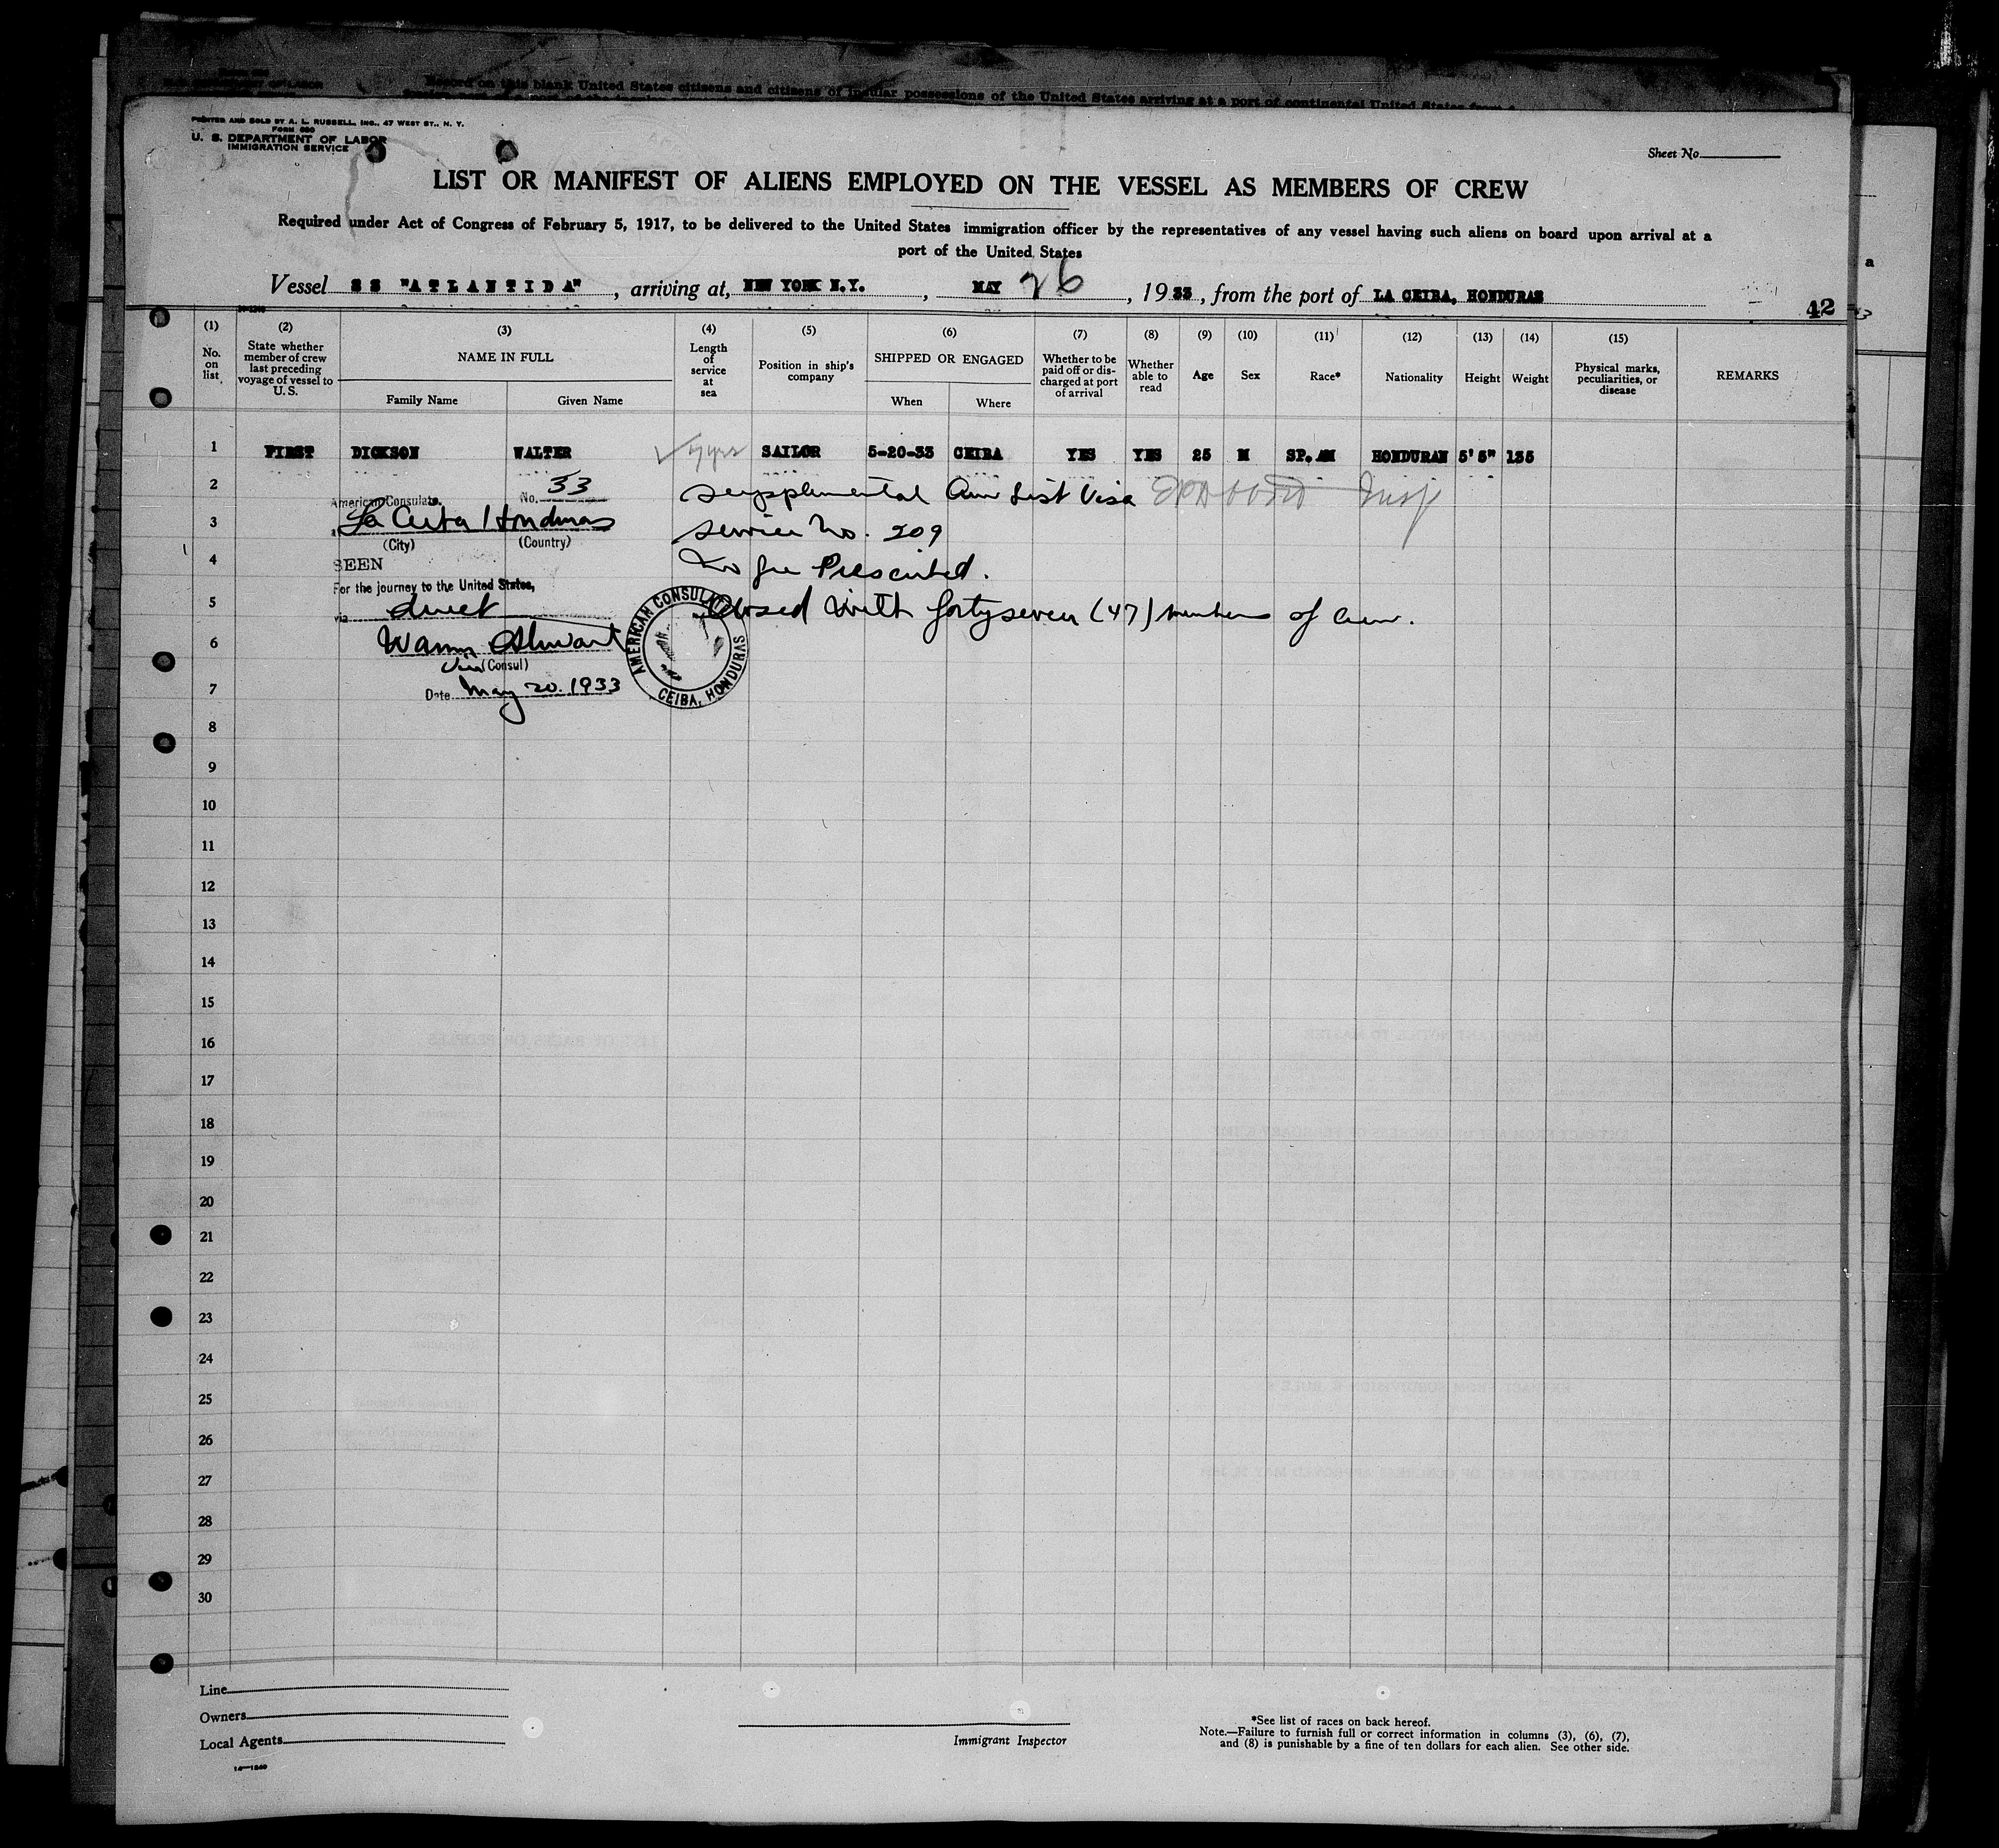 Record on this blank United States citizens and citizens of insular possessions of the United States arriving at a port of continental United States from
PRINTED AND SOLD BY A. L. RUSSELL, INC., 47 WEST ST., N. Y.
FORM 680
U. S. DEPARTMENT OF LABOR
IMMIGRATION SERVICE
Sheet No.
LIST OR MANIFEST OF ALIENS EMPLOYED ON THE VESSEL AS MEMBERS OF CREW
Required under Act of Congress of February 5, 1917, to be delivered to the United States immigration officer by the representatives of any vessel having such aliens on board upon arrival at a
port of the United States
Vessel SS "ATLANTIDA", arriving at, NEW YORK N.Y., MAY 26, 1933, from the port of LA CEIBA, HONDURAS
42
14-1240
(1) No. on list
(2) State whether member of crew last preceding voyage of vessel to U. S.
(3) NAME IN FULL
Family Name Given Name
(4) Length of service at sea
(5) Position in ship's company
(6) SHIPPED OR ENGAGED
When Where
(7) Whether to be paid off or discharged at port of arrival
(8) Whether able to read
(9) Age
(10) Sex
(11) Race*
(12) Nationality
(13) Height
(14) Weight
(15) Physical marks, peculiarities, or disease
REMARKS
1 FIRST DICKSON WALTER yrs SAILOR 5-20-33 CEIBA YES YES 25 M SP. AM HONDURAN 5'5" 135
2 American Consulate, No. 33 Supplemental Crew List Visa Insp
3 La Ceiba, Honduras Service No. 209
(City) (Country)
4 SEEN No fee Prescribed.
For the journey to the United States,
5 via direct Closed with forty seven (47) members of crew.
6 Stewart
Vice (Consul)
7 Date May 20. 1933
AMERICAN CONSULATE
CEIBA, HONDURAS
8
9
10
11
12
13
14
15
16
17
18
19
20
21
22
23
24
25
26
27
28
29
30
Line
Owners
Local Agents
14-1240
Immigrant Inspector
*See list of races on back hereof.
Note.—Failure to furnish full or correct information in columns (3), (6), (7),
and (8) is punishable by a fine of ten dollars for each alien. See other side.